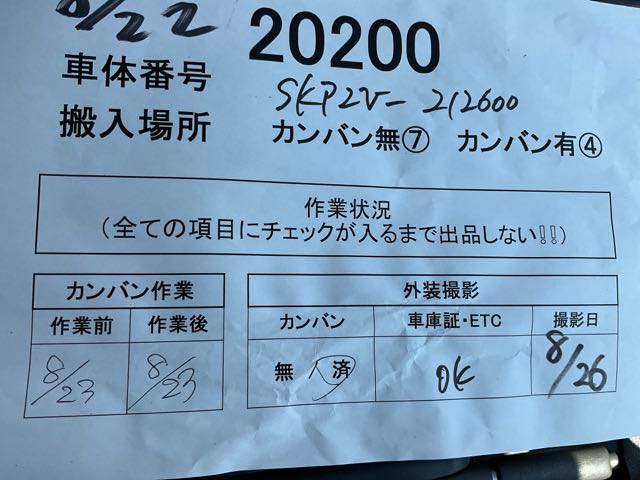 8/22
20200
車体番号
SKP2V-212600
搬入場所 カンバン無⑦ カンバン有④
作業状況
(全ての項目にチェックが入るまで出品しない!!)
カンバン作業
作業前 作業後
8/23 8/23
外装撮影
カンバン 車庫証・ETC 撮影日
無 / 済 OK 8/26